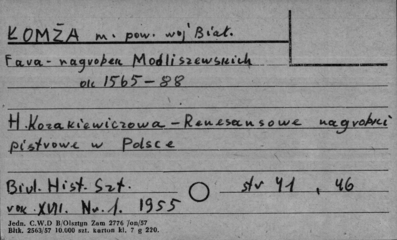 ŁOMŻA m. pow. woj Biał.
Fara - nagrobek Modliszewskich
ok 1565-88
H. Kozakiewiczowa - Renesansowe nagrobki
piętrowe w Polsce
Biul. Hist. Szt. str 41, 46
rok XVII. Nr. 1. 1955
Jedn. C.W.D B/Olsztyn Zam 2776 /on/57
Bltk. 2563/57 10.000 szt. karton kl. 7 g 220.